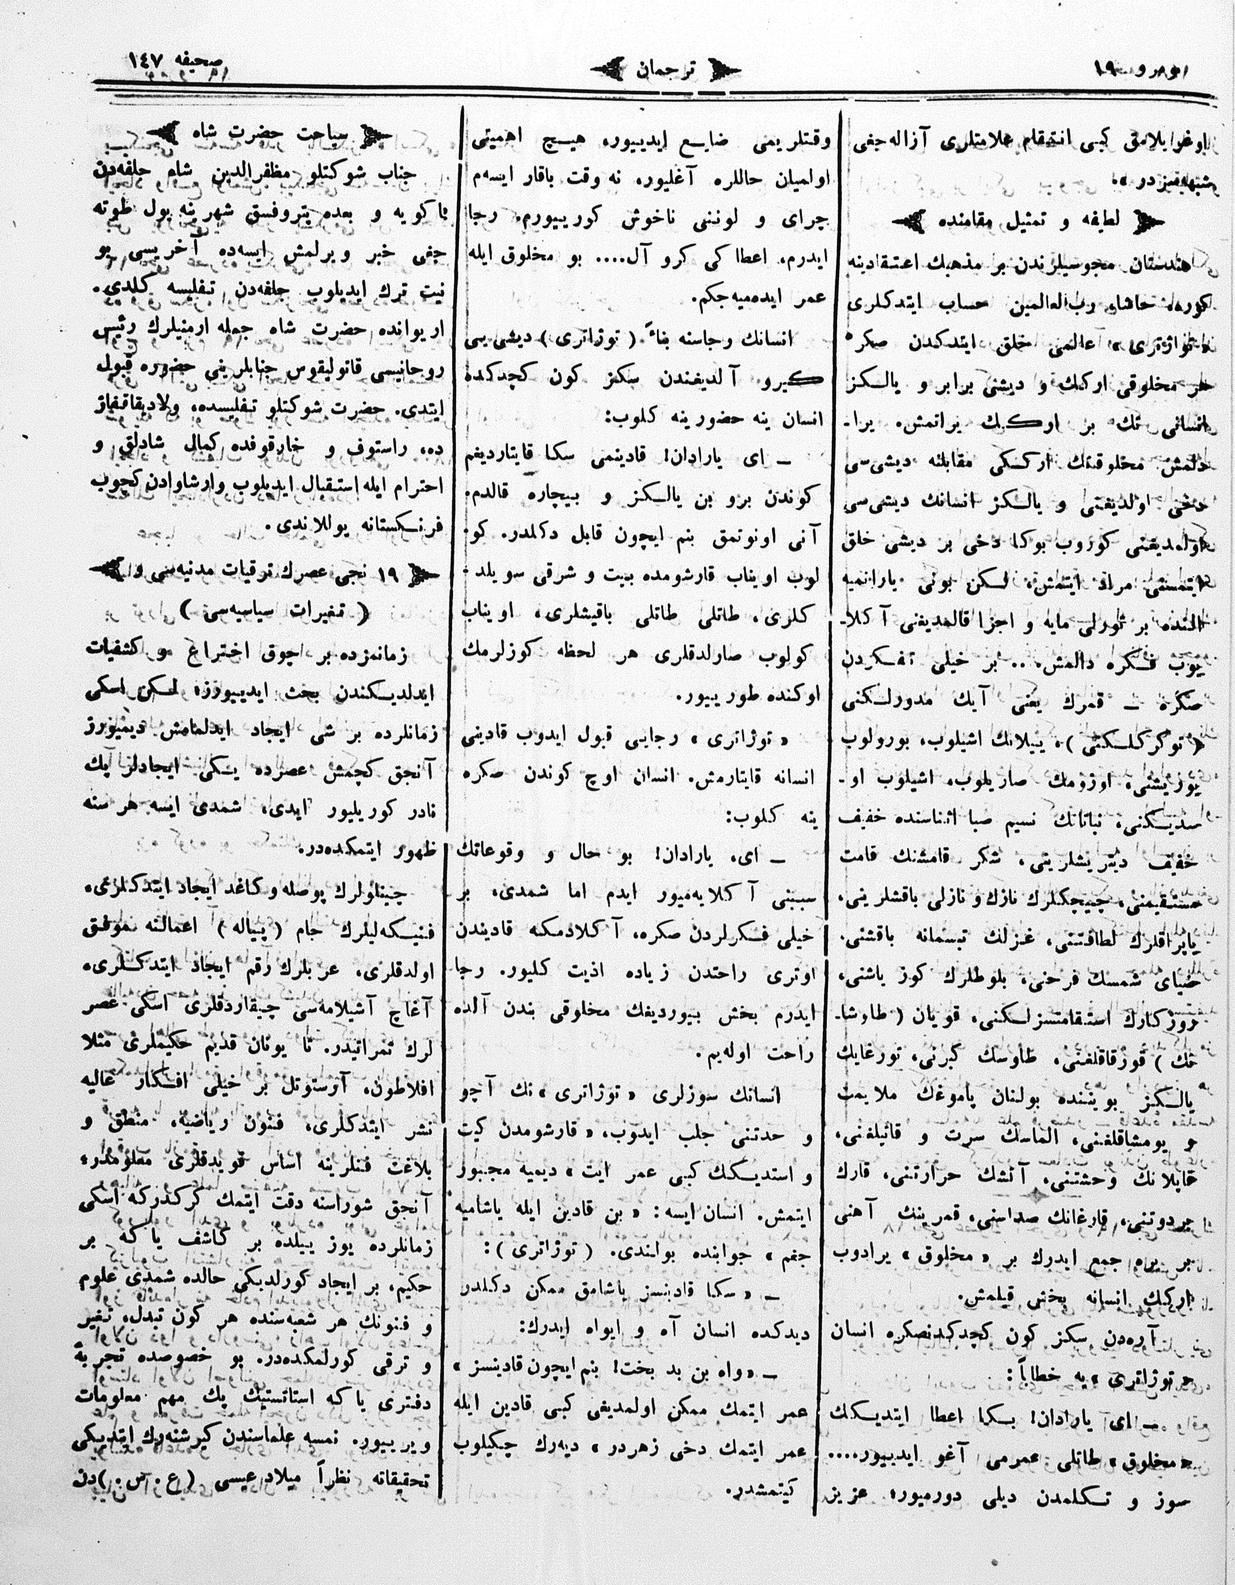 نومرو ١٩
ترجمان
صحيفه ١٤٧
اوغرايلامق كبى انتقام علامتلرى آزاله جغى
شبهه سزدر».
لطيفه و تمثيل مقامنده
هندستان مجوسيلرندن بر مذهبك اعتقادينه
كوره، حاشا، رب العالمين حساب ايتدكلرى
«توژاترى» عالمى خلق ايتدكدن صكره
هر مخلوقى اركك و ديشى برابر و يالكز
انسانى تك بر اوركك يراتمش. يرا-
دلمش مخلوقتك اركسكى مقابلنه ديشىسى
دخى اولديغنى و يالكز انسانك ديشىسى
اولمديغنى كوروب بوكا دخى بر ديشى خلق
ايتمسنى مراد ايتمش، لكن بونى يارانميه
النده بر تورلى مايه و اجزا قالمديغنى آكلا-
يوب فكره دالمش... بر خيلى تفكردن
صكره — قمرك يعنى آيك مدورلكنى
(توكركلكنى)، ييلانك اشيلوب، بورولوب
يوزيشنى، اوزومك صاريلوب، اشيلوب او-
سديكنى، نباتاتك نسيم صبا اثناسنده خفيف
خفيف ديتريشلرينى، شكر قامشنك قامت
مستقيمنى، چيچكلرك نازك و نازلى باقشلرينى،
ياپراقلرك لطافتنى، غزلنك تبسمانه باقشنى.
ضياى شمسك فرحنى، بلوطلرك كوز ياشنى،
روزكارك استقامتسزلكنى، قويان (طاوشا-
نك) قورقاقلغنى، طاوسك كبرنى، تورغايك
يالكز بويننده بولنان پاموغك ملايمت
و يومشاقلغنى، الماسك سرت و قاتيلغنى،
قاپلانك وحشتنى، آتشك حرارتنى، قارك
برودتنى، قارغانك صداسنى، قمرينك آهنى
بر يره جمع ايدرك بر «مخلوق» يرادوب
اركك انسانه بخش قيلمش.
آره دن سكز كون كچدكدنصكره انسان
«توژاترى»يه خطاباً:
— اى يارادان! بكا اعطا ايتديكك
«مخلوق» طاتلى عمرمى آغو ايدييور....
سوز و تكلمدن ديلى دورميور، عزيز
وقتلريمى ضايع ايدييور، هيچ اهميتى
اولميان حاللره آغليور، نه وقت باقار ايسهم
چراى و لوننى ناخوش كورييورم. رجا
ايدرم، اعطا كى كرو آل.... بو مخلوق ايله
عمر ايده ميه جكم.
انسانك رجاسنه بناءً (توژاترى) ديشىيى
كيرو آلديغندن سكز كون كچدكده
انسان ينه حضورينه كلوب:
— اى يارادان! قادينمى سكا قايتارديغم
كوندن برو بن يالكز و بيچاره قالدم.
آنى اونوتمق بنم ايچون قابل دكلدر. كو-
لوب اويناب قارشومده بيت و شرقى سويلد-
كلرى، طاتلى طاتلى باقيشلرى، اويناب
كولوب صاولدقلرى هر لحظه كوزلرمك
اوكنده طورييور.
«توژاترى» رجايى قبول ايدوب قادينى
انسانه قايتارمش. انسان اوچ كوندن صكره
ينه كلوب:
— اى، يارادان! بو حال و وقوعاتك
سببنى آكلايهميور ايدم اما شمدى، بر
خيلى فكرلردن صكره، آكلادمكه قاديندن
اوترى راحتدن زياده اذيت كليور. رجا
ايدرم بخش بيورديغك مخلوقى بندن آلده
راحت اولهيم.
انسانك سوزلرى «توژاترى»نك آچو
و حدتنى جلب ايدوب، «قارشومدن كيت
و استديكك كبى عمر ايت» ديميه مجبور
ايتمش. انسان ايسه: «بن قادين ايله ياشاميه
جغم» جوابنده بولندى. (توژاترى):
— «سكا قادينسز ياشامق ممكن دكلدر
ديدكده انسان آه و ايواه ايدرك:
— «واه بن بد بخت! بنم ايچون قادينسز»
عمر ايتمك ممكن اولمديغى كبى قادين ايله
عمر ايتمك دخى زهردر» ديهرك چكيلوب
كيتمشدر.
سياحت حضرت شاه
جناب شوكتلو مظفرالدين شاه جلفه دن
باكويه و بعده پتروفسق شهرينه يول طوته
جغى خبر ويرلمش ايسهده آخريسى بو
نيت ترك ايديلوب جلفه دن تفليسه كلدى.
اريوانده حضرت شاه جمله ارمنيلرك رئيس
روحانيسى قاتوليقوس جنابلرينى حضوره قبول
ايتدى. حضرت شوكتلو تفليسده، ولاديقافقاز
ده، راستوف و خارقوفده كمال شادلق و
احترام ايله استقبال ايديلوب وارشاوادن كچوب
فرنكستانه يوللاندى.
١٩ نجى عصرك ترقيات مدنيهسى و
(تغيرات سياسيهسى)
زمانمزده بر چوق اختراع و كشفيات
ايدلديكندن بحث ايدييورز، لكن اسكى
زمانلرده بر شى ايجاد ايدلمامش ديميورز
آنجق كچمش عصرده يكى ايجادلر پك
نادر كوريليور ايدى، شمدى ايسه هر سنه
ظهور ايتمكدهدر.
چينلولرك پوصله و كاغد ايجاد ايتدكلرى،
فنيكهليلرك جام (پياله) اعمالنه موفق
اولدقلرى، عربلرك رقم ايجاد ايتدكلرى،
آغاچ آشيلامهسى چيقاردقلرى اسكى عصر
لرك ثمراتيدر. تا يونان قديم حكيملرى مثلا
افلاطون، آرستوتل بر خيلى افكار عاليه
نشر ايتدكلرى، فنون رياضيه، منطق و
بلاغت فنلرينه اساس قويدقلرى معلومدر،
آنجق شوراسنه دقت ايتمك كركدركه اسكى
زمانلرده يوز ييلده بر كاشف ياكه بر
حكيم، بر ايجاد كورلديكى حالده شمدى علوم
و فنونك هر شعبهسنده هر كون تبدل، تغير
و ترقى كورلمكدهدر. بو خصوصده تجربهٔ
دفترى ياكه استاتستيك پك مهم معلومات
ويرييور. نمسه علماسندن كيرشنهرك ايتديكى
تحقيقاته نظراً ميلاد عيسى (ع. س.)دن